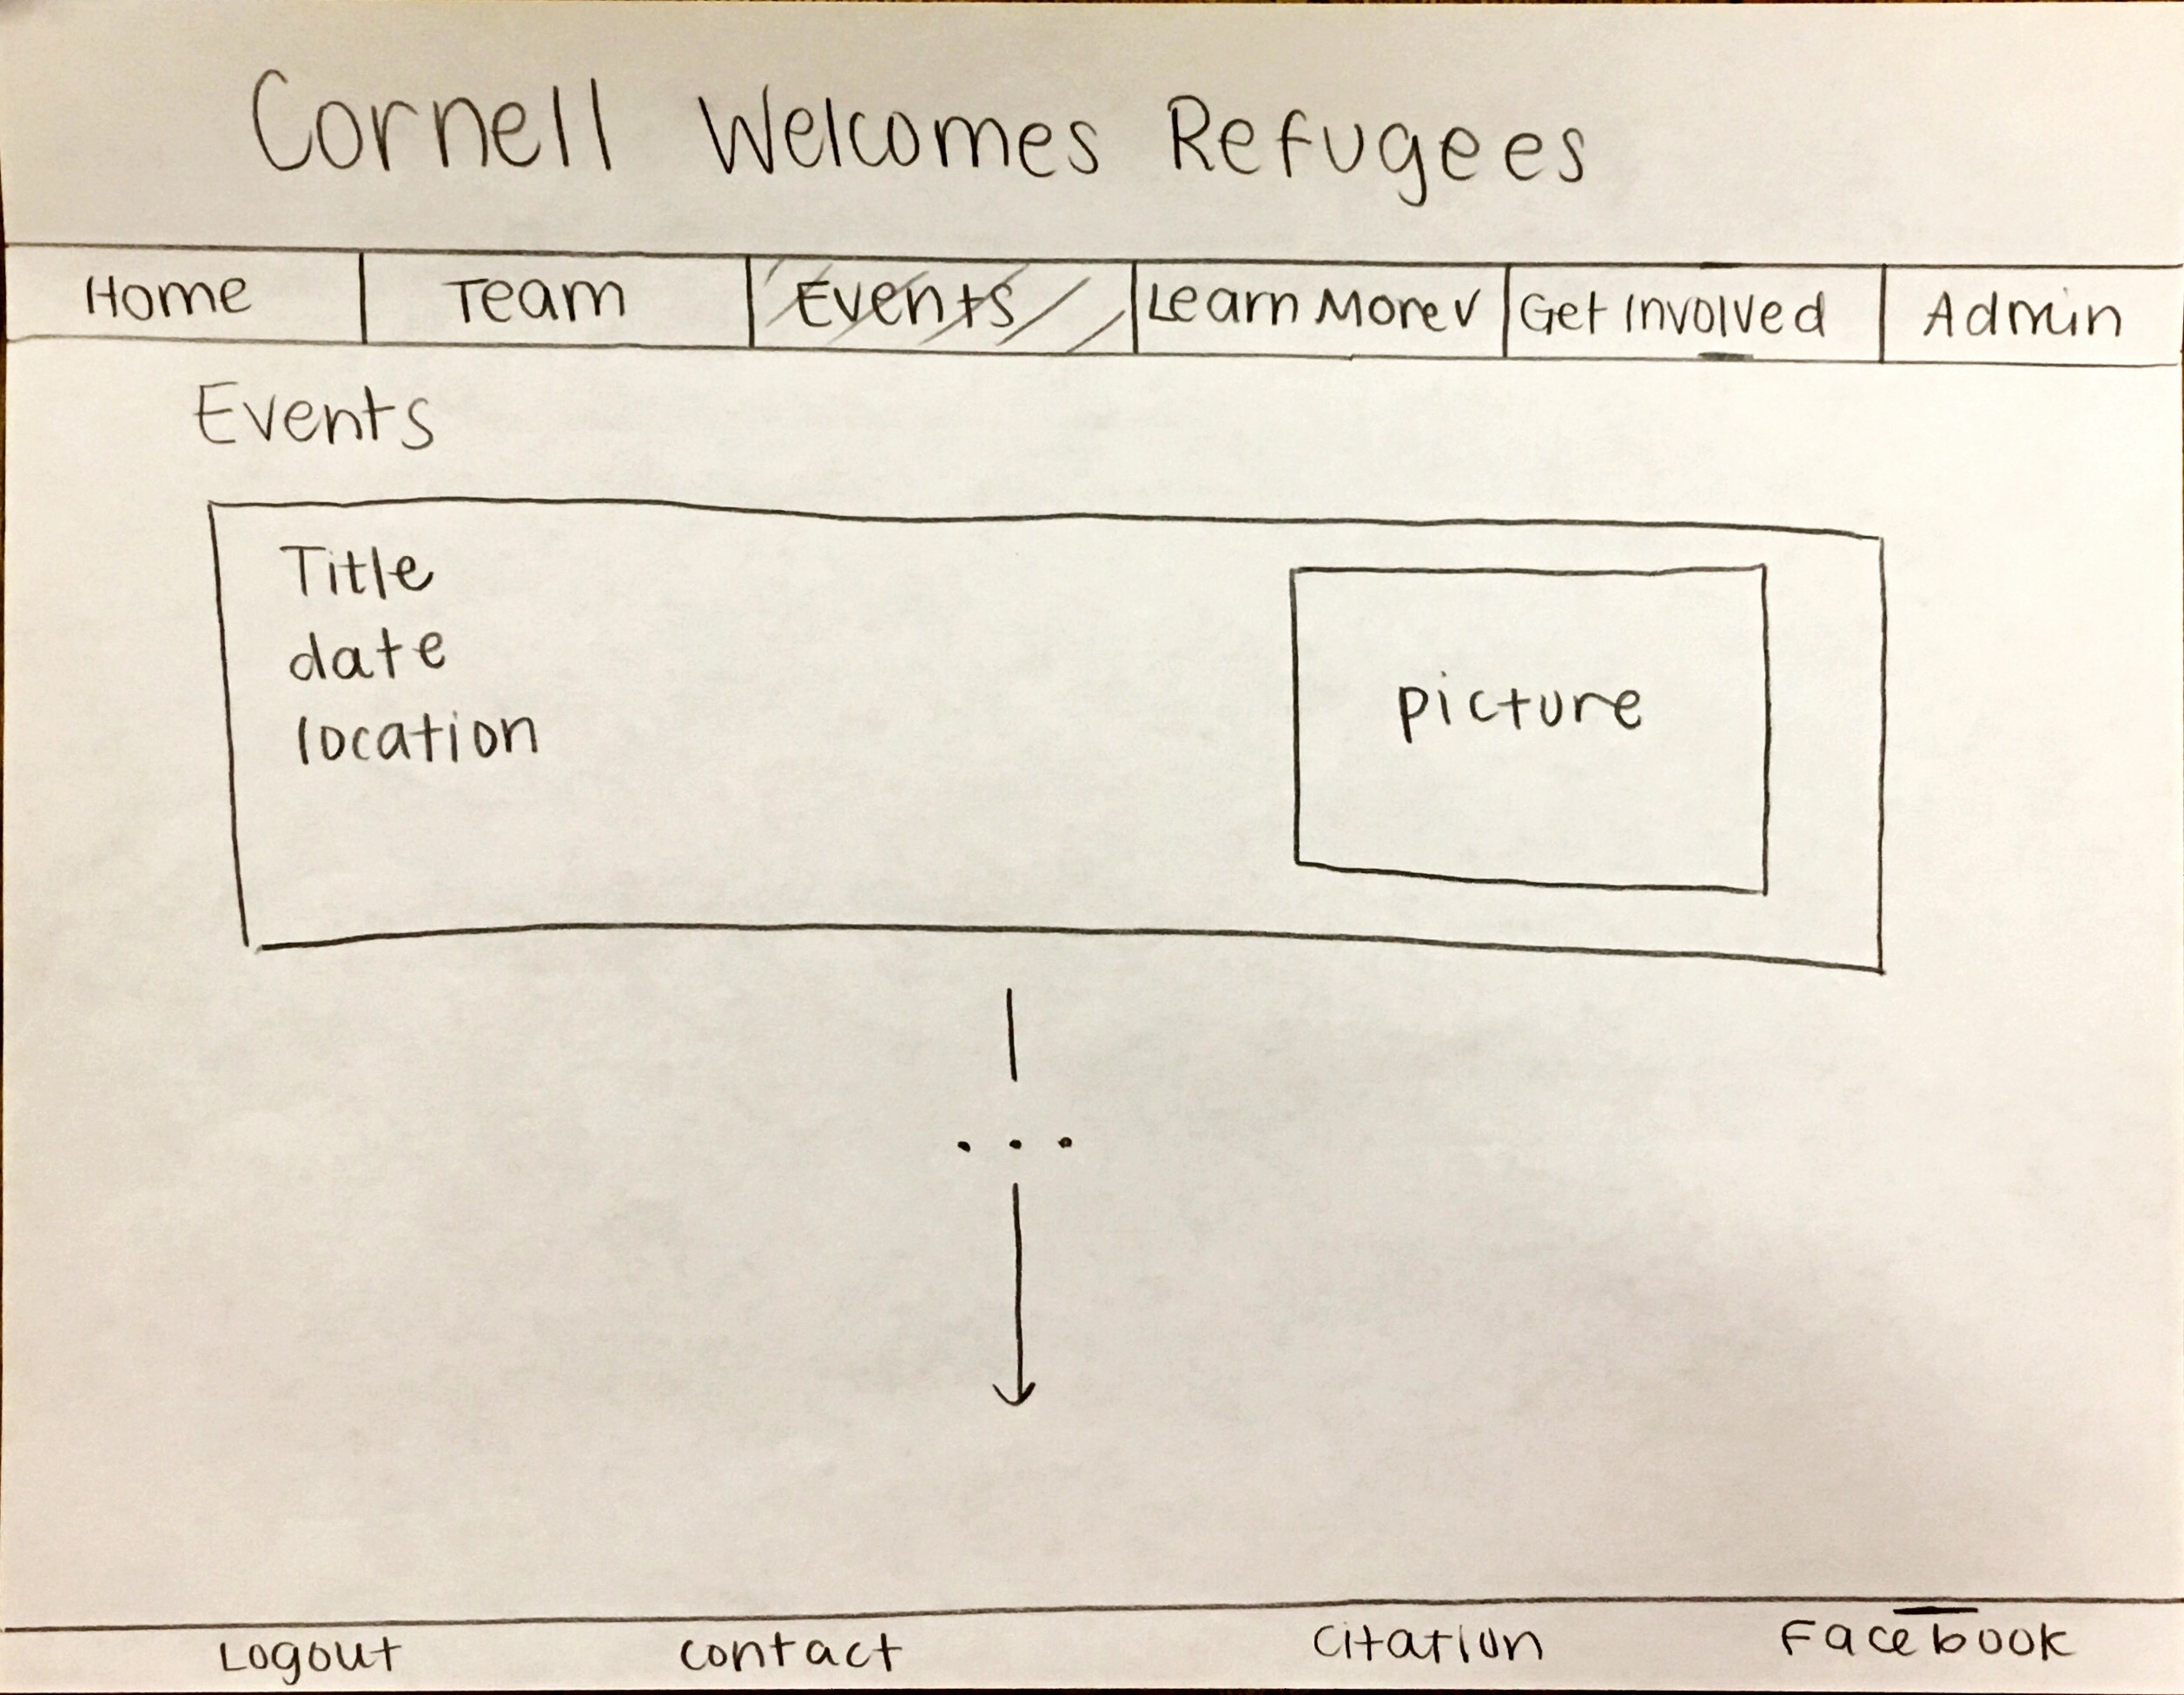 Cornell Welcomes Refugees
Home Team Events Learn More v Get Involved Admin
Events
Title
date
location
picture
...
Logout contact citation Facebook